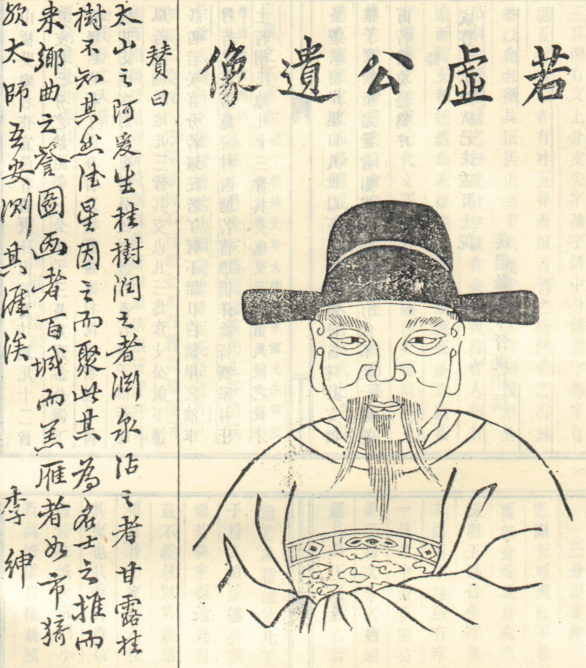 若虛公遺像
贊曰
太山之阿爰生桂樹潤之者淵泉沾之者甘露桂
樹不知其然德星因之而聚此其為名士之推而
来鄉曲之譽圖画者百城而羔雁者如市猗
歟太師吾安測其涯涘 李紳